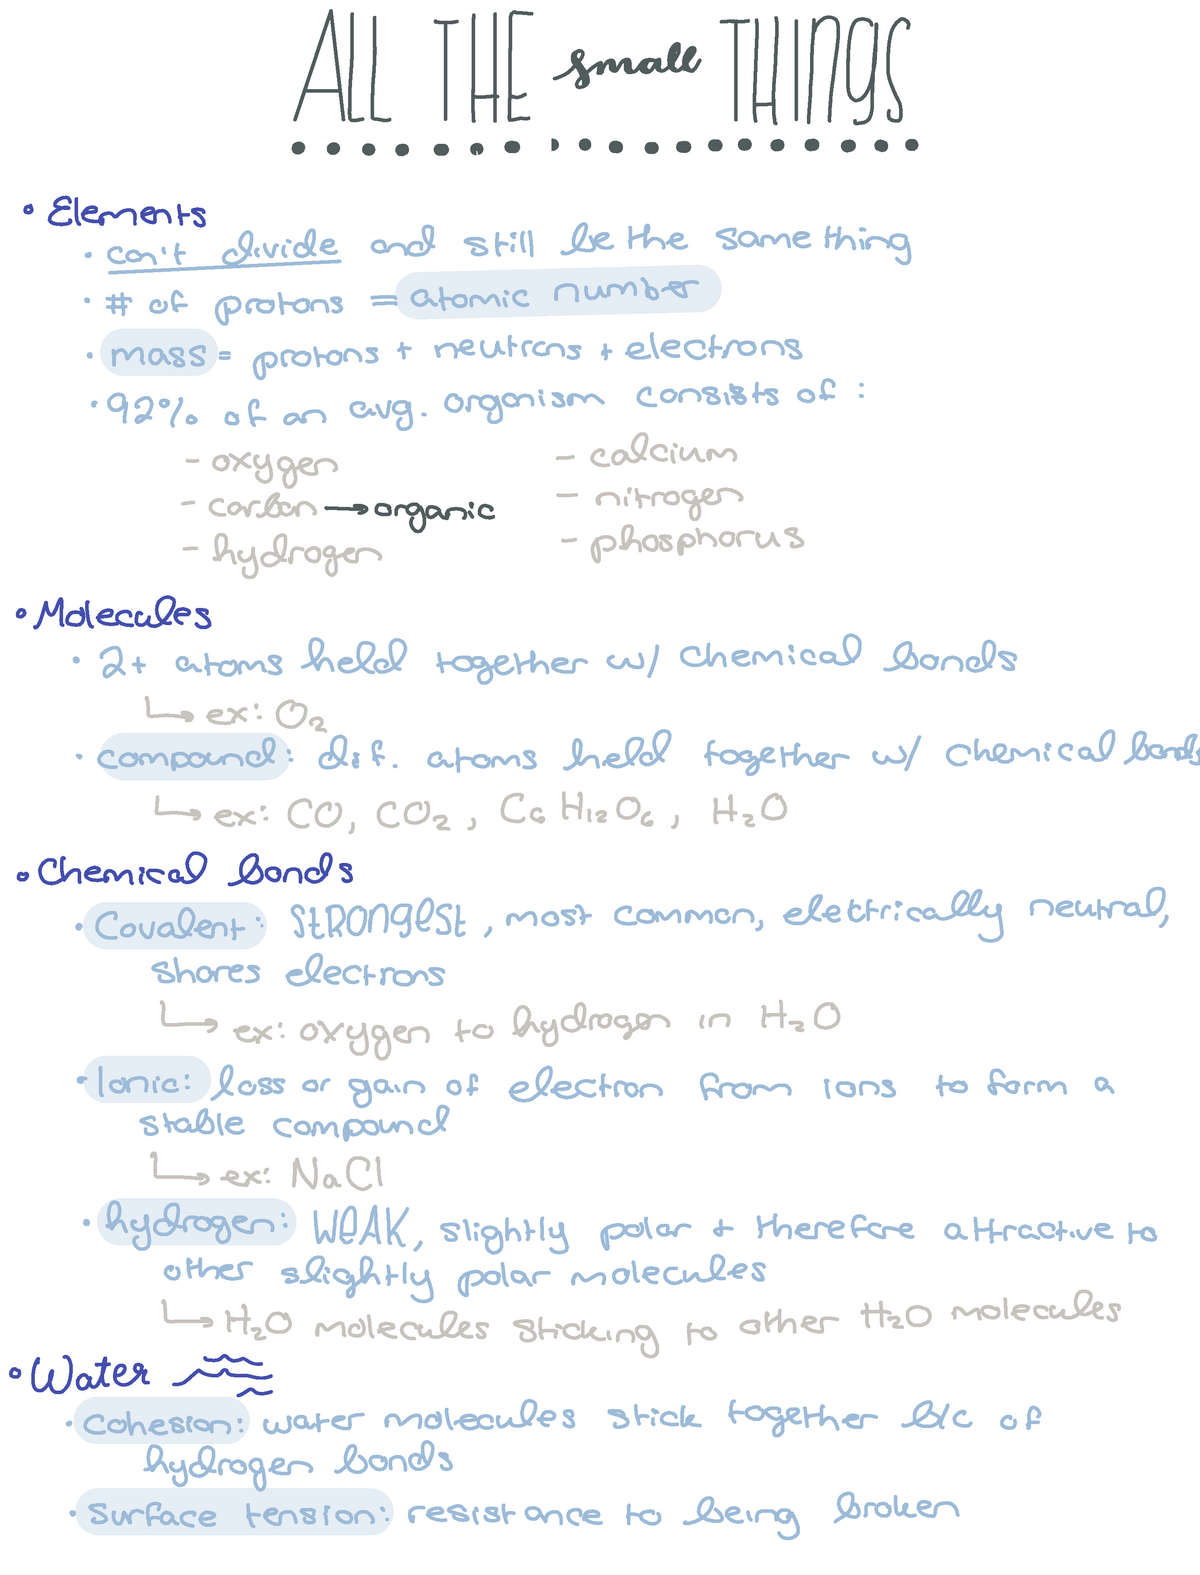 ALL THE small THINGS
• Elements
• can't divide and still be the same thing
• # of protons = atomic number
• mass = protons + neutrons + electrons
• 92% of an avg. organism consists of :
- oxygen - calcium
- carbon → organic - nitrogen
- hydrogen - phosphorus
• Molecules
• 2+ atoms held together w/ chemical bonds
↳ ex: O₂
• compound: dif. atoms held together w/ chemical bonds
↳ ex: CO, CO₂, C₆H₁₂O₆, H₂O
• Chemical bonds
• Covalent: STRONGEST, most common, electrically neutral,
shares electrons
↳ ex: oxygen to hydrogen in H₂O
• Ionic: loss or gain of electron from ions to form a
stable compound
↳ ex: NaCl
• hydrogen: WEAK, slightly polar + therefore attractive to
other slightly polar molecules
↳ H₂O molecules sticking to other H₂O molecules
• Water
• Cohesion: water molecules stick together b/c of
hydrogen bonds
• Surface tension: resistance to being broken